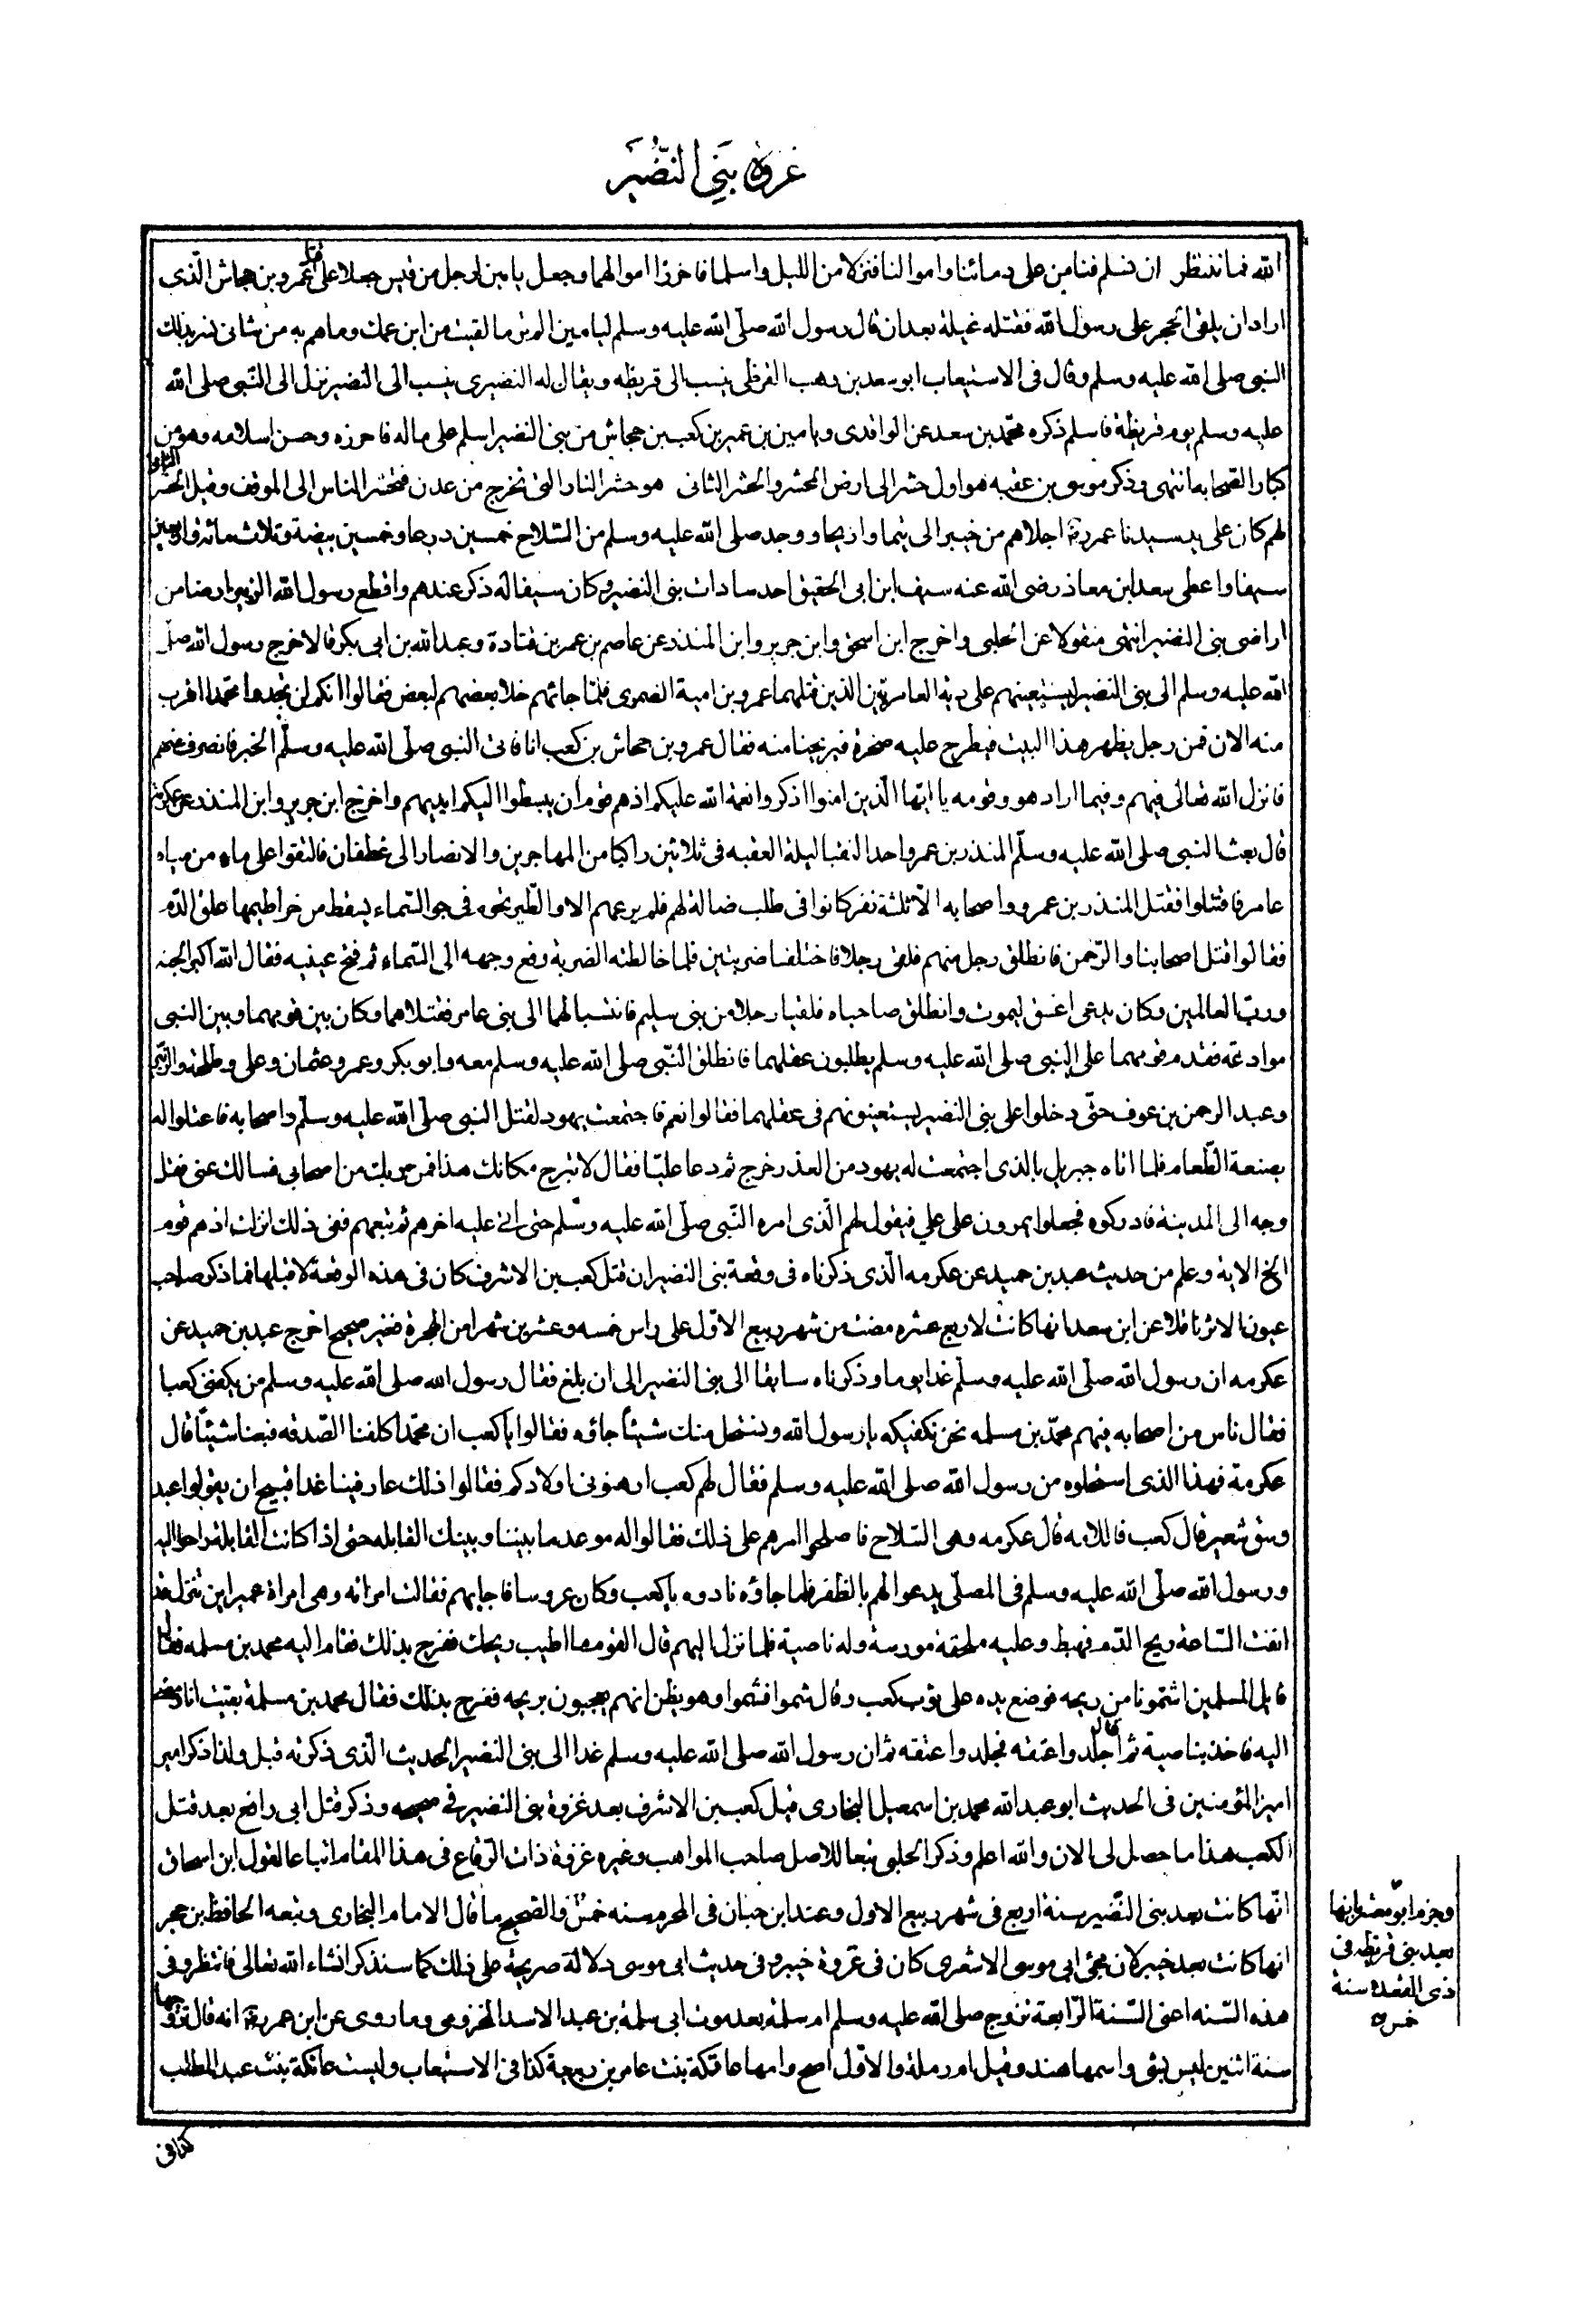 غزوة بني النضير
الله فما ننتظر ان نسلم فنأمن على دمائنا واموالنا فنزلا من الليل واسلما فاحرزا اموالهما وجعل يامين لرجل من قيس جعلا على قتل عمرو بن جحاش الّذى
اراد ان يلقى الحجر على رسول الله فقتله غيلة بعد ان قال رسول الله صلّى الله عليه وسلم ليامين الم تر ما لقيت من ابن عمك وما هم به من شانى فسر بذلك
النبى صلى الله عليه وسلم وقال فى الاستيعاب ابو سعد بن وهب القرظى ينسب الى قريظه ويقال له النضيرى ينسب الى النضير نزل الى النّبى صلى الله
عليه وسلم يوم قريظة فاسلم ذكره محمّد بن سعد عن الواقدى ويامين بن عمير بن كعب بن جحاش من بنى النضير اسلم على ماله فاحرزه وحسن اسلامه وهو من
كبار الصّحابه انتهى وذكر موسى بن عقبه هو اول حشر الى ارض المحشر والحشر الثانى هو حشر النار التى تخرج من عدن فتحشر الناس الى الموقف وقيل الحشر الثانى
لهم كان على يد سيدنا عمر رضه اجلاهم من خيبر الى تيما واريحا ووجد صلى الله عليه وسلم من السّلاح خمسين درعا وخمسين بيضة وثلاث مائة واربعين
سيفا واعطى سعد ابن معاذ رضى الله عنه سيف ابن ابى الحقيق احد سادات بنى النضير وكان سيفا له ذكر عندهم واقطع رسول الله الزبير ارضا من
اراضى بنى النضير انتهى منقولا عن الحلبى واخرج ابن اسحق وابن جرير وابن المنذر عن عاصم بن عمر بن قتادة وعبد الله بن ابى بكر قالا خرج رسول الله صلّى
الله عليه وسلم الى بنى النضير ليستعينهم على دية العامريّين الذين قتلهما عمرو بن امية الضمرى فلمّا جائهم خلا بعضهم لبعض فقالوا انكم لن تجدوا محمّدا اقرب
منه الان فمن رجل يظهر هذا البيت فيطرح عليه صخرة فيريحنا منه فقال عمرو بن جحاش بن كعب انا فاتى النبى صلّى الله عليه وسلّم الخبر فانصرف عنهم
فانزل الله تعالى فيهم وفيما اراد هو وقومه يا ايّها الّذين امنوا اذكروا نعمة الله عليكم اذ هم قوم ان يبسطوا اليكم ايديهم واخرج ابن جرير وابن المنذر عن عكرمة
قال بعث النبى صلى الله عليه وسلّم المنذر بن عمرو احد النقبا ليلة العقبه فى ثلاثين راكبا من المهاجرين والانصار الى غطفان فالتقوا على ماء من مياه
عامر فاقتتلوا فقتل المنذر بن عمرو واصحابه الّا ثلثة نفر كانوا فى طلب ضالة لهم فلم يرعهم الا والطّير تحوم فى جو السّماء يسقط من خراطيمها علق الدّم
فقالوا قتل اصحابنا والرّحمن فانطلق رجل منهم فلقى رجلا فاختلفا ضربتين فلما خالطته الضربة رفع وجهه الى السّماء ثم فتح عينيه فقال الله اكبر الجنه
وربّ العالمين وكان يدعى اعنق ليموت وانطلق صاحباه فلقيا رجلا من بنى سليم فانتسبا لهما الى بنى عامر فقتلاهما وكان بين قومهما وبين النبى
موادعه فقدم قومهما على النبى صلى الله عليه وسلم يطلبون عقلهما فانطلق النّبى صلى الله عليه وسلم معه وابو بكر وعمر وعثمان وعلى وطلحه والزبير
وعبد الرحمن بن عوف حتّى دخلوا على بنى النضير ليستعينونهم فى عقلهما فقالوا نعم فاجتمعت يهود لقتل النبى صلّى الله عليه وسلّم واصحابه فاعتلوا له
بصنعة الطّعام فلما اتاه جبريل بالذى اجتمعت له يهود من الغدر خرج ثم دعا عليّا فقال لا تبرح مكانك هذا فمن مر بك من اصحابى فسالك عنى فقل
وجه الى المدينة فادركوه فجعلوا يمرون على على فيقول لهم الّذى امره النّبى صلّى الله عليه وسلّم حتى اتى عليه اخرهم ثم تبعهم ففى ذلك انزلت اذ هم قوم
الخ الاية وعلم من حديث عبد بن حميد عن عكرمه الّذى ذكرناه فى وقعة بنى النضير ان قتل كعب بن الاشرف كان فى هذه الوقعة لا قبلها فما ذكر صاحب
عيون الاثر نا قلا عن ابن سعد انها كانت لاربع عشره مضت من شهر ربيع الاوّل على راس خمسه وعشرين شهرا من الهجرة فغير صحيح اخرج عبد بن حميد عن
عكرمه ان رسول الله صلّى الله عليه وسلّم غدا يوما وذكرناه سابقا الى بنى النضير الى ان بلغ فقال رسول الله صلى الله عليه وسلم من يكفنى كعبا
فقال ناس من اصحابه فيهم محمّد بن مسلمه نحن نكفيكه يا رسول الله ونستحل منك شيئاً جاؤه فقالوا يا كعب ان محمّدا كلفنا الصّدقه فبعنا شيئًا قال
عكرمة فهذا الذى استحلوه من رسول الله صلى الله عليه وسلم فقال لهم كعب ارهنونى اولادكم فقالوا ذلك عار فينا غدا قبيح ان يقولوا عبد
وسق شعير قال كعب فاللامه قال عكرمه وهى السّلاح فاصلحوا امرهم على ذلك فقالوا له موعد ما بيننا وبينك القابله حتى اذا كانت القابله راحوا اليه
ورسول الله صلّى الله عليه وسلم فى المصلّى يدعوا لهم بالظفر فلما جاؤه نادوه يا كعب وكان عروسا فاجابهم فقالت امراته وهى امراة عمير اين تنزل قد
انفت السّاعة ريح الدّم فهبط وعليه ملحفة مورسة وله ناصية فلما نزل اليهم قال القوم ما اطيب ريحك ففرح بذلك فقام اليه محمد بن مسلمه فقال
قايل المسلمين اشتمونا من ريحه فوضع يده على ثوب كعب وقال شموا فشموا وهو يظن انهم يعجبون بريحه ففرح بذلك فقال محمد بن مسلمة بقيت انا ومضى
اليه فاخذ بناصية ثم قال اجلد واعنقه فجلد واعنقه ثم ان رسول الله صلى الله عليه وسلم غدا الى بنى النضير الحديث الّذى ذكرته قبل ولذا ذكر امير
امير المؤمنين فى الحديث ابو عبد الله محمد بن اسمعيل البخارى قبل كعب بن الاشرف بعد غزوة بنى النضير فى صحيحه وذكر قتل ابى رافع بعد قتل
الكعب هذا ما حصل لى الان والله اعلم وذكر الحلبى تبعا للاصل صاحب المواهب وغيره غزوة ذات الرّقاع فى هذا المقام اتباعا لقول ابن اسحاق
انّها كانت بعد بنى النّضير سنة اربع فى شهر ربيع الاول وعند ابن حبّان فى المحرم سنه خمس والصّحيح ما قال الامام البخارى وتبعه الحافظ بن حجر
انها كانت بعد خيبر لان مجئ ابى موسى الاشعرى كان فى غزوة خيبر وفى حديث ابى موسى دلالة صريحة على ذلك كما سنذكر انشاء الله تعالى فانتظر وفى
هذه السّنه اعنى السّنة الرّابعة تزوج صلى الله عليه وسلم ام سلمة بعد موت ابى سلمة بن عبد الاسد المخزومى وما روى عن ابن عمر رضه انه قال تزوجها
سنة اثنين ليس بشى واسمها هند وقيل ام رملة والاوّل اصح وامها عاتكة بنت عامر بن ربيعة كذا فى الاستيعاب وليست عاتكة بنت عبد المطلب
وجزم ابو معشر انها
بعد بنى قريظه فى
ذى القعده سنة
خمس
كذا فى